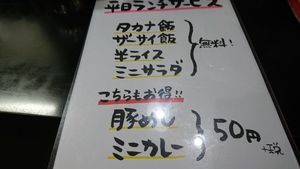 平日ランチサービス
タカナ飯
ザーサイ飯
半ライス
ミニサラダ
無料!
こちらもお得!!
豚めし
ミニカレー
50円
+税